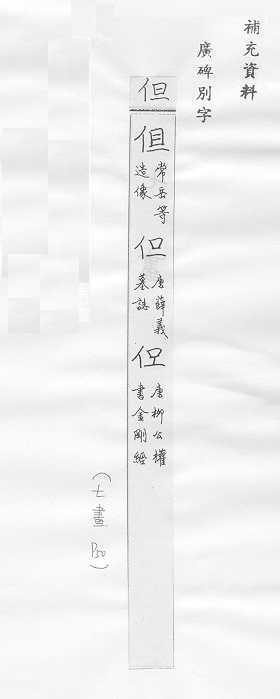 補充資料
廣碑別字
但
伹
常岳等
造像
唐薛義
墓誌
唐柳公權
書金剛經
(七畫 P50)